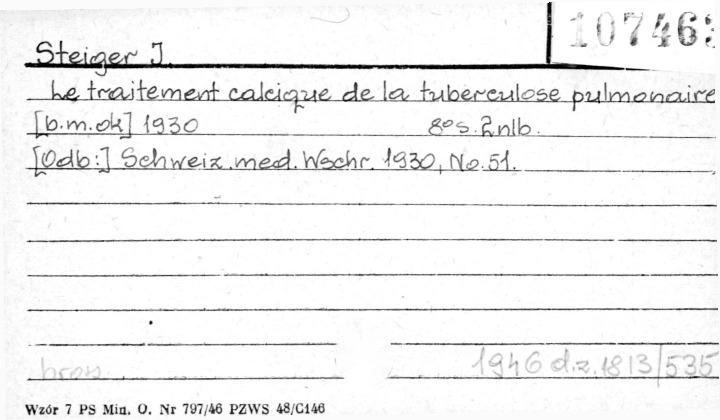 10746
Steiger J.
Le traitement calcique de la tuberculose pulmonaire
[b.m.ok] 1930 8° s. 2 nlb.
[Odb:] Schweiz. med. Wschr. 1930, No. 51.
brosz.
1946 d.z. 1813/535
Wzór 7 PS Min. O. Nr 797/46 PZWS 48/C146